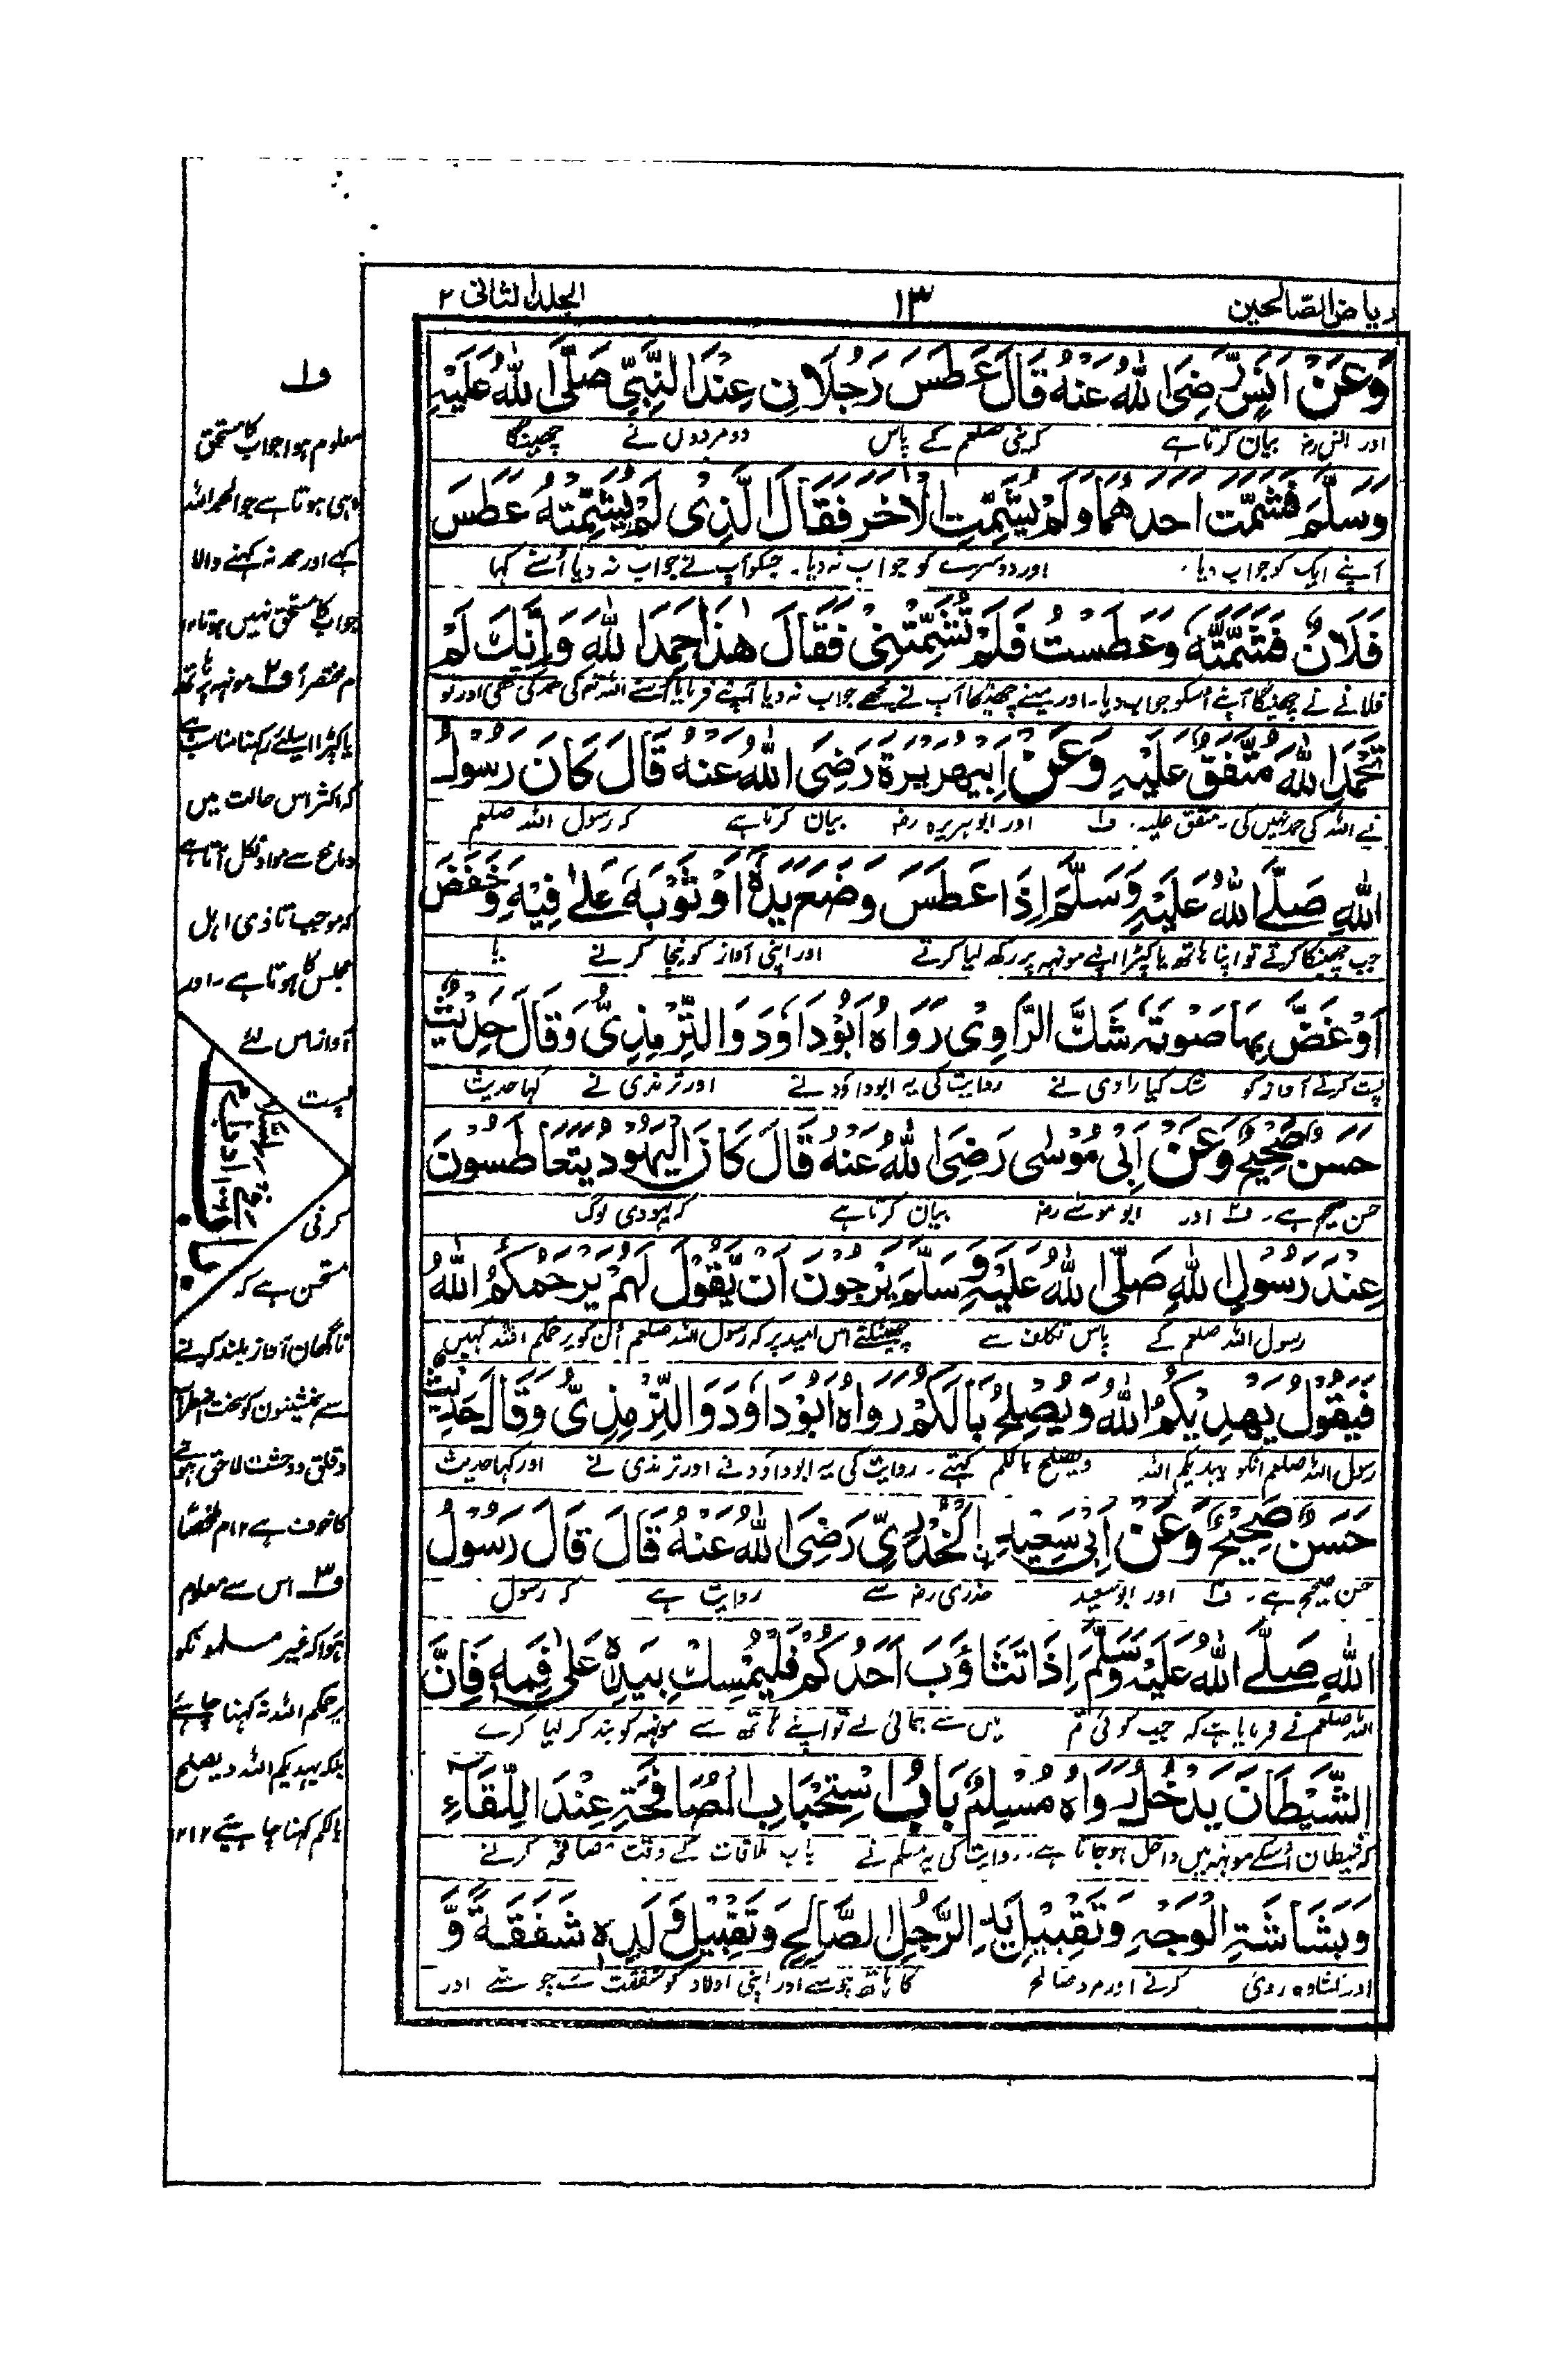 ریاض الصالحین ۱۳ الجلد الثانی ۲
وَعَنْ اَنَسٍ رَّضِیَ اللّٰهُ عَنْهُ قَالَ عَطَسَ رَجُلَانِ عِنْدَ النَّبِیِّ صَلَّی اللّٰهُ عَلَیْهِ
اور انس رضہ بیان کرتا ہے کہ نبی صلعم کے پاس دو مردوں نے چھینکا
وَسَلَّمَ فَشَمَّتَ اَحَدَهُمَا وَلَمْ یُشَمِّتِ الْاٰخَرَ فَقَالَ الَّذِیْ لَمْ یُشَمِّتْهُ عَطَسَ
آپنے ایک کو جواب دیا۔ اور دوسرے کو جواب نہ دیا۔ جسکو آپ نے جواب نہ دیا اُسنے کہا
فُلَانٌ فَشَمَّتَّهٗ وَعَطَسْتُ فَلَمْ تُشَمِّتْنِیْ فَقَالَ هٰذَا حَمِدَ اللّٰهَ وَاِنَّكَ لَمْ
فلانے نے چھینکا آپنے اُسکو جواب دیا۔ اور مینے چھینکا آپ نے مجھے جواب نہ دیا آپنے فرمایا اسنے اللہ تم کی حمد کی تھی اور تو
تَحْمَدِ اللّٰهَ مُتَّفَقٌ عَلَیْهِ وَعَنْ اَبِیْ هُرَیْرَةَ رَضِیَ اللّٰهُ عَنْهُ قَالَ كَانَ رَسُوْلُ
نے اللہ کی حمد نہیں کی۔ متفق علیہ۔ ف۱ اور ابو ہریرہ رضہ بیان کرتا ہے کہ رسول اللہ صلعم
اللّٰهِ صَلَّے اللّٰهُ عَلَیْهِ وَسَلَّمَ اِذَا عَطَسَ وَضَعَ یَدَهٗ اَوْ ثَوْبَهٗ عَلٰے فِیْهِ وَخَفَضَ
جب چھینکا کرتے تو اپنا ہاتھ یا کپڑا اپنے مونہہ پر رکھ لیا کرتے اور اپنی آواز کو نیچا کرتے یا
اَوْ غَضَّ بِهَا صَوْتَهٗ شَكَّ الرَّاوِیْ رَوَاهُ اَبُوْدَاوٗدَ وَالتِّرْمِذِیُّ وَقَالَ حَدِیْثٌ
پست کرتے آواز کو شک کیا راوی نے روایت کی یہ ابوداؤد نے اور ترمذی نے کہا حدیث
حَسَنٌ صَحِیْحٌ وَعَنْ اَبِیْ مُوْسٰی رَضِیَ اللّٰهُ عَنْهُ قَالَ كَانَ الْیَهُوْدُ یَتَعَاطَسُوْنَ
حسن صحیح ہے۔ ف۲ اور ابو موسٰے رضہ بیان کرتا ہے کہ یہودی لوگ
عِنْدَ رَسُوْلِ اللّٰهِ صَلَّی اللّٰهُ عَلَیْهِ وَسَلَّمَ یَرْجُوْنَ اَنْ یَّقُوْلَ لَهُمْ یَرْحَمُكُمُ اللّٰهُ
رسول اللہ صلعم کے پاس تکلف سے چھینکتے اس امید پر کہ رسول اللہ صلعم اُن کو یرحمکم اللہ کہیں
فَیَقُوْلُ یَهْدِیْكُمُ اللّٰهُ وَیُصْلِحُ بَالَكُمْ رَوَاهُ اَبُوْدَاوٗدَ وَالتِّرْمِذِیُّ وَقَالَ حَدِیْثٌ
رسول اللہ صلعم انکو یہدیکم اللہ ویصلح بالکم کہتے۔ روایت کی یہ ابوداؤد نے اور ترمذی نے اور کہا حدیث
حَسَنٌ صَحِیْحٌ وَعَنْ اَبِیْ سَعِیْدِ الْخُدْرِیِّ رَضِیَ اللّٰهُ عَنْهُ قَالَ قَالَ رَسُوْلُ
حسن صحیح ہے۔ ف۳ اور ابو سعید خدری رضہ سے روایت ہے کہ رسول
اللّٰهِ صَلَّے اللّٰهُ عَلَیْهِ وَسَلَّمَ اِذَا تَثَاؤَبَ اَحَدُكُمْ فَلْیُمْسِكْ بِیَدِهٖ عَلٰی فِمِهٖ فَاِنَّ
اللہ صلعم نے فرمایا ہے کہ جب کوئی تم میں سے جمائی لے تو اپنے ہاتھ سے مونہہ کو بند کر لیا کرے
الشَّیْطَانَ یَدْخُلُ رَوَاهُ مُسْلِمٌ بَابُ اسْتِحْبَابِ الْمُصَافَحَةِ عِنْدَ اللِّقَاءِ
کہ شیطان اُسکے مونہہ میں داخل ہو جاتا ہے۔ روایت کی یہ مسلم نے باب ملاقات کے وقت مصافحہ کرنے
وَبَشَاشَةِ الْوَجْهِ وَتَقْبِیْلِ یَدِ الرَّجُلِ الصَّالِحِ وَتَقْبِیْلِ وَلَدِهٖ شَفَقَةً وَّ
اور کشادہ روئی کرنے اور مرد صالح کا ہاتھ چومنے اور اپنی اولاد کو شفقت سے چومنے اور
ف۱
معلوم ہوا جواب کا مستحق
وہی ہوتا ہے جو الحمد اللہ
کہے اور حمد نہ کہنے والا
جواب کا مستحق نہیں ہوتا ۱۲
م مختصراً ف۲ مونہہ پر ہاتھ
یا کپڑا اسلئے رکھنا مناسب ہے
کہ اکثر اس حالت میں
دماغ سے مواد نکل آتا ہے
کہ موجب تاذی اہل
مجلس کا ہوتا ہے۔ اور
آواز اس لئے
پست
کرنی
مستحسن ہے کہ
ناگہان آواز بلند کرنے
سے ہمنشینون کو سخت اضطراب
و قلق و وحشت لاحق ہونے
کا خوف ہے ۱۲ م ملخصًا
ف۳ اس سے معلوم
ہوا کہ غیر مسلمونکو
یرحمکم اللہ نہ کہنا چاہئے
بلکہ یہدیکم اللہ ویصلح
بالکم کہنا چاہئے ۱۲